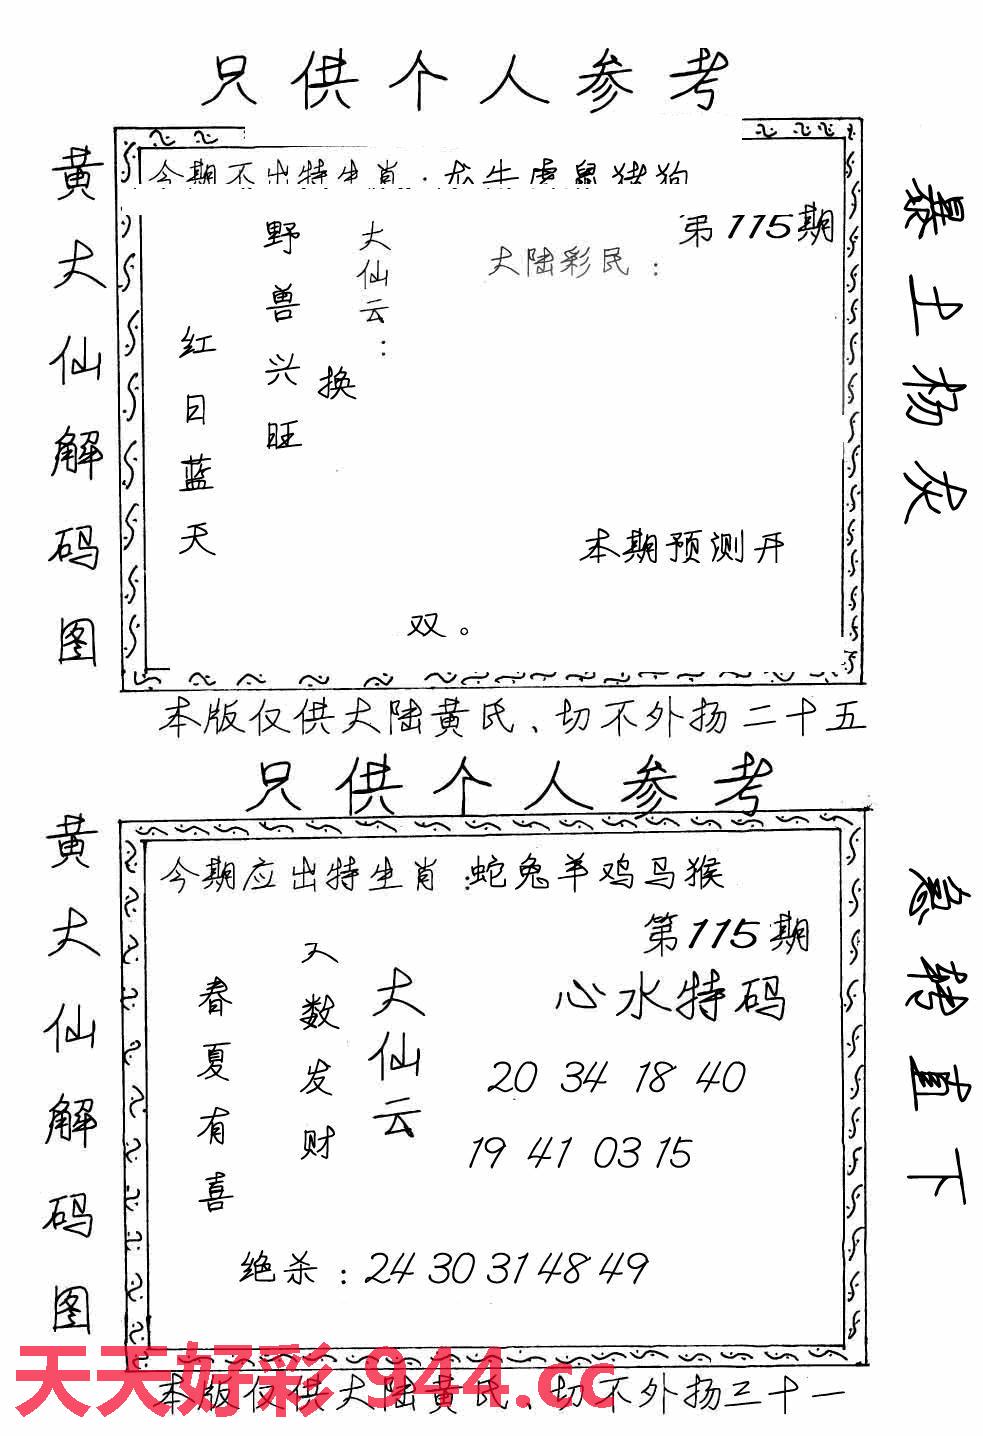 只供个人参考
黄大仙解码图
今期不出特生肖：龙牛虎鼠猪狗
第115期
大陆彩民：
大仙云：
换
野兽兴旺
红日蓝天
本期预测开
双。
暴土扬灰
本版仅供大陆黄氏、切不外扬二十五
只供个人参考
黄大仙解码图
今期应出特生肖：蛇兔羊鸡马猴
第115期
心水特码
20 34 18 40
19 41 03 15
大仙云
又数发财
春夏有喜
绝杀：24 30 31 48 49
急转直下
天天好彩 944.cc
本版仅供大陆黄氏、切不外扬三十一